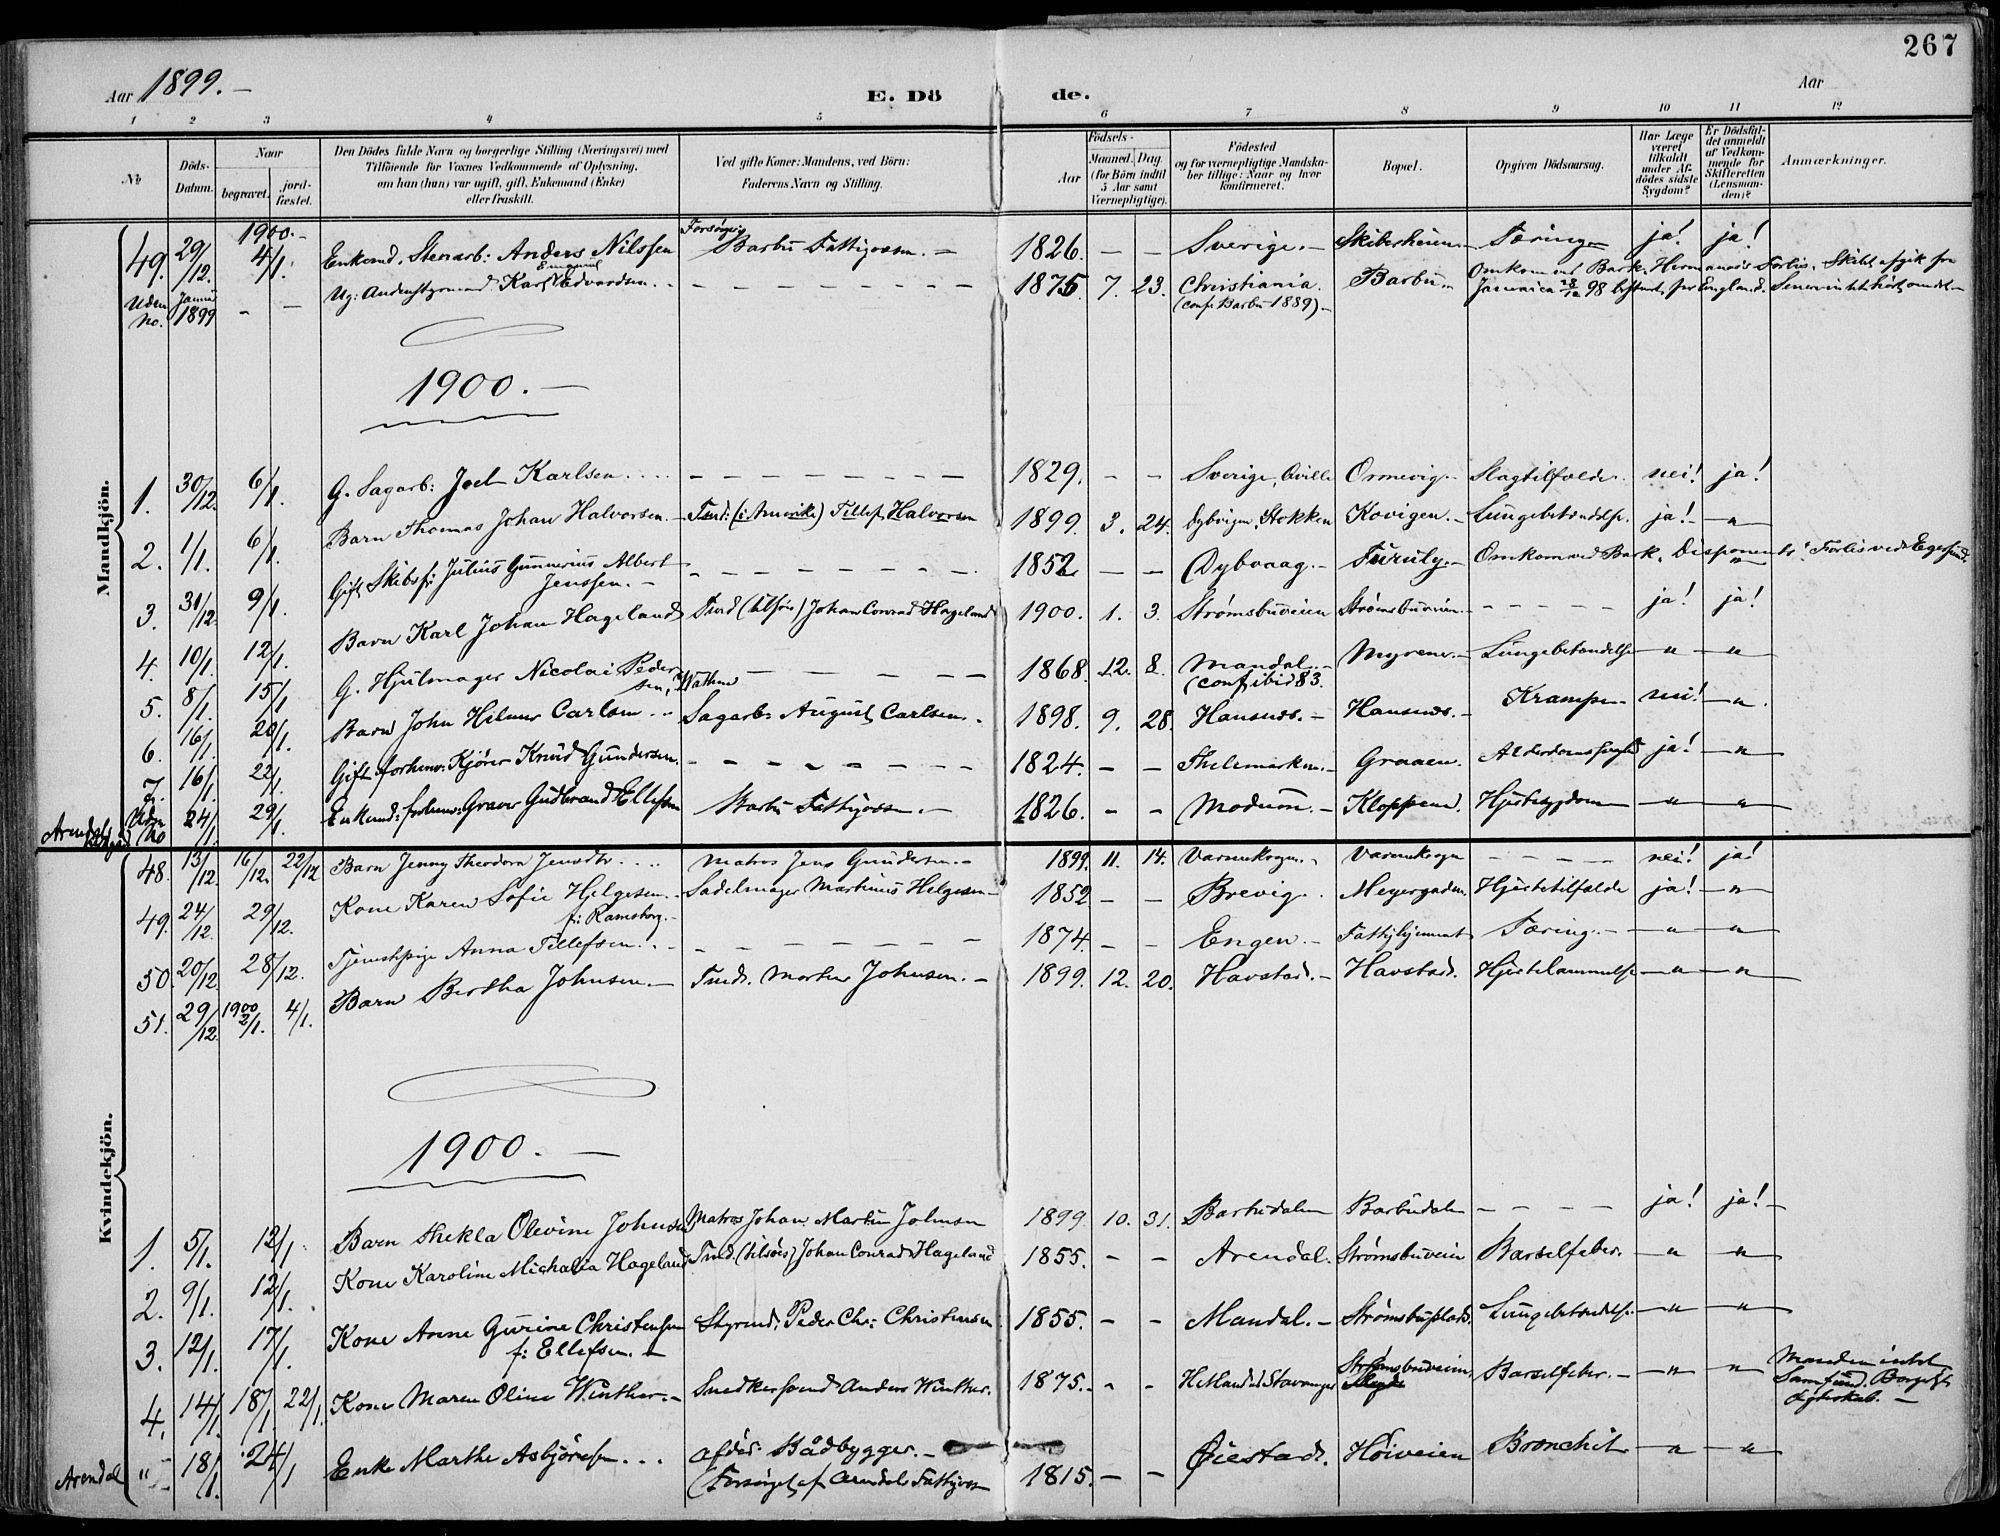 267
Aar 1899. —
E. Dö de.
Aar
1 2 3 4 5 6 7 8 9 10 11 12
No
Döds-Datum.
Naar
begravet.
jord-fæstet.
Den Dödes fulde Navn og borgerlige Stilling (Næringsvei) med
Tilföiende for Voxnes Vedkommende af Oplysning,
om han (hun) var ugift, gift, Enkemand (Enke)
eller fraskilt.
Ved gifte Koner: Mandens, ved Börn:
Faderens Navn og Stilling.
Födsels-
Aar
Maaned. Dag.
(for Börn indtil
5 Aar samt
Værnepligtige).
Födested
og for værnepligtige Mandska-
ber tillige: Naar og hvor
konfirmeret.
Bopæl.
Opgiven Dödsaarsag.
Har Læge
været
tilkaldt
under Af-
dödes sidste
Sygdom?
Er Dödsfal-
det anmeldt
af Vedkom-
mende for
Skifteretten
(Lensman-
den)?
Anmærkninger.
Mandkjön.
49. 29/12. 1900.- 4/1. Enkemd. Stenarb: Anders Nilssen Forsörges Barbu Fattigvæsn. — 1826. — — Sverige. — Skibsheien Tæring — ja! ja!
Uden No. Januar 1899 — — Ug: Andenstyrmand Karl Edvardsen. 1875 7. 23. Christiania. (conf. Barbu 1889). — Barbu. Omkom ved Bark. Hermanos's Forlis. Skibet afgik fra Jamaica 28/12 98 bestemt for England. Senere intet hört om det —
1900. —
1. 30/12. 6/1. G. Sagarb: Joel Karlsen.... 1829. — — Sverige, Qville Ormevig. Slagtilfælde. nei! ja!
2. 1/1. 6/1. Barn Thomas Johan Halvorsen. — Tmd: (i Amerika) Tellef Halvorsen 1899. 3. 24. Dybvigen, Stokken Kovigen. — Lungebetændelse. ja! — " —
3. 31/12. 9/1. Gift Skibsf: Julius Gunnerius Albert Jenssen. — 1852 — — Dybvaag. — Furuly. — Omkom ved Bark. Disponent's Forlis ved Egersund.
4. 10/1. 12/1. Barn Karl Johan Hageland Tmd (tilsös) Johan Conrad Hageland 1900. 1. 3. Strømsbuveien Strømsbuveien. — — — — ja! ja!
5. 8/1. 15/1. G. Hjulmager Nicolai Pedersen, 1868. 12. 8. Mandal. — (conf. ibid 83. Myrene. — Lungebetændelse — " — — " —
6. 16/1. 20/1. Barn John Hilmer Carlsen .. Sagarb: August Carlsen. 1898. 9. 28. Hansnæs. — Hansnæs. — Krampe nei! — " —
7. 16/1. 22/1. Gift forhenv: Kjörer Knud Gundersen. 1824. — — Thelemarken. — Graaen. Alderdomssvaghed ja! — " —
Arendals Uden No 24/1. 29/1. Enkemd: forhenv: Graver Gudbrand Ellefsen Barbu Fattigvæsn. — 1826. — — Modum. — Kloppene. Hjertesygdom — " — — " —
Kvindekjön.
48. 13/12. 16/12. 22/12 Barn Jenny Theodora Jensdtr .... Matros Jens Gundersen. — 1899. 11. 14. Varmekrogen. — Varmekrogen — — — — nei! ja!
49. 24/12. 29/12. Kone Karen Sofie Helgesen. f: Ramsborg. — Sadelmager Martinus Helgesen — 1852 — — Brevig. Meyergaden. Hjertetilfælde ja! — " —
50. 20/12 28/12. Tjenestepige Anna Tellefsen. 1874. — — Engen. — Fattiglemmet Tæring. — — " — — " —
51. 29/12. 1900 2/1. 4/1. Barn Bertha Johnsen. — Tmd. Morten Johnsen. — 1899. 12. 20. Havstad. — Havstad. Hjertelammelse — " — — " —
1900. —
1. 5/1. 12/1. Barn Thekla Olevine Johnsen Matros Johan Martin Johnsen 1899. 10. 31. Barbudalen Barbudalen — — — — ja! ja! —
2. 9/1. 12/1. Kone Karoline Michalia Hageland Tmd (tilsös) Johan Conrad Hageland 1855. — — Arendal. Strømsbuveien Barselfeber. — " — — " —
3. 12/1. 17/1. Kone Anne Gurine Christensen f: Ellefsen. — Styrmd: Peder Chr: Christensen 1855. — — Mandal. — Strømsbuplads. Lungebetændelse — " — — " —
4. 14/1. 18/1 22/1. Kone Maren Oline Winther. — Snedkersvend Anders Winther. 1875. — — Hetland v. Stavanger Strømsbuveien Barselfeber. — — " — — " — Manden i intet Samfund. Borgerligt Ægteskab. —
Arendal " 18/1. 24/1 Enke Marthe Asbjörnsen ... Afdöd: Bådbygger. — (Forsörget af Arendals Fattigvæsn 1815. — — Øiestad. Höiveien Bronchit — " — — " —